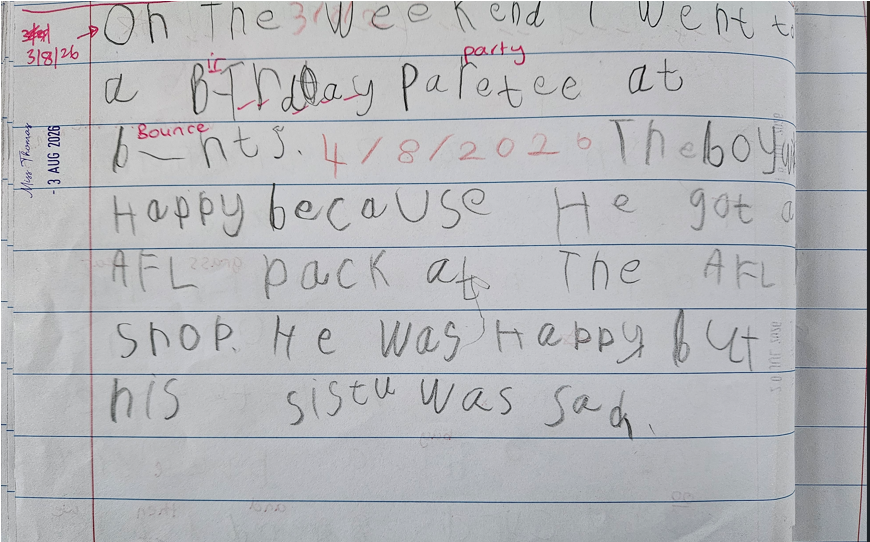 On The Weekend I went to
3/8/26
ir
party
a BirThday Paretee at
- 3 AUG 2026
Miss Thomas
Bounce
b nts. 4/8/2026 The boy
Happy because He got a
AFL pack at The AFL
shop. He was Happy but
his sistu was sad.